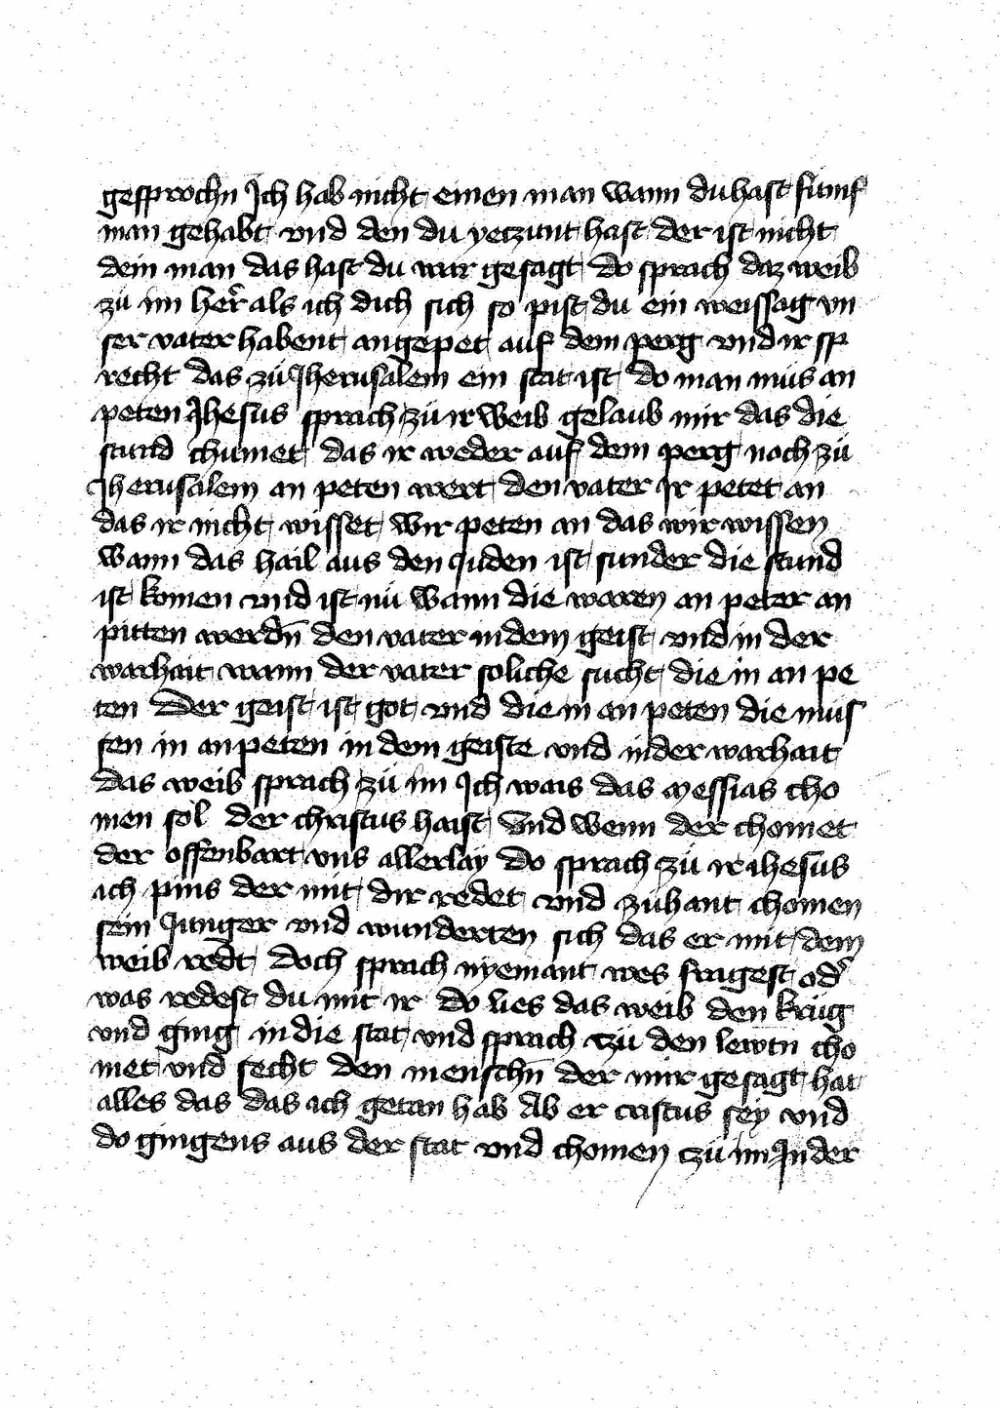 gesprochn Ich hab nicht einen man wann du hast fümf
man gehabt vnd den du yeczunt hast der ist nicht
dein man das hast du war gesagt do sprach daz weib
zü im her̃ als ich dich sich so pist du ein weissag vn
ser vater habent angepet auf dem perg vnd ir sp
recht das zü Jherusalem ein stat ist do man müs an
peten Jhesus sprach zü ir weib gelaub mir das die
stund chumet das ir weder auf dem perg noch zü
Jherusalem an peten wert den vater Ir petet an
das ir nicht wisset wir peten an das wir wissen
wann das hail aus den Juden ist sunder die stund
ist komen vnd ist nü wann die waren an peter an
pitten werdn̄ den vater in dem geist vnd in der
warhait wann der vater soliche sucht die in an pe
ten Der geist ist got vnd die in an peten die müs
sen in an peten in dem geiste vnd in der warhait
das weib sprach zü im Ich wais das messias cho
men sol der christus haist Vnd wenn der chomet
der offenbart vns allerlay do sprach zü ir ihesus
ich pins der mit dir redet vnd zühant chomen
sein Junger vnd wunderten sich das er mit dem
weib redt doch sprach nyemant wes fragest od͛
was redest du mit ir do lies das weib den krüg
vnd ging in die stat vnd sprach czü den lewtn cho
met vnd secht den menschn̄ der mir gesagt hat
alles das das ich getan hab Ab er cristus sey vnd
do gingens aus der stat vnd chomen czü im In der